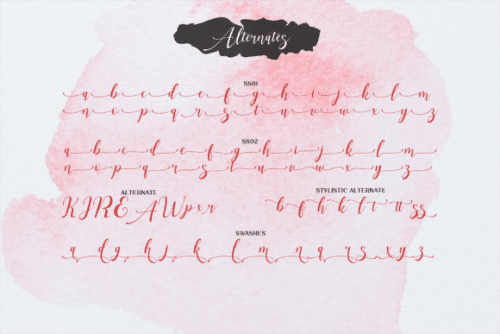 Alternates
SS01
a b c d e f g h i j k l m
n o p q r s t u v w x y z
SS02
a b c d e f g h i j k l m
n o p q r s t u v w x y z
ALTERNATE
K J R E A W p x r
STYLISTIC ALTERNATE
b f h k l t tt ss
SWASHES
a d g h j k l m n q r s x y z